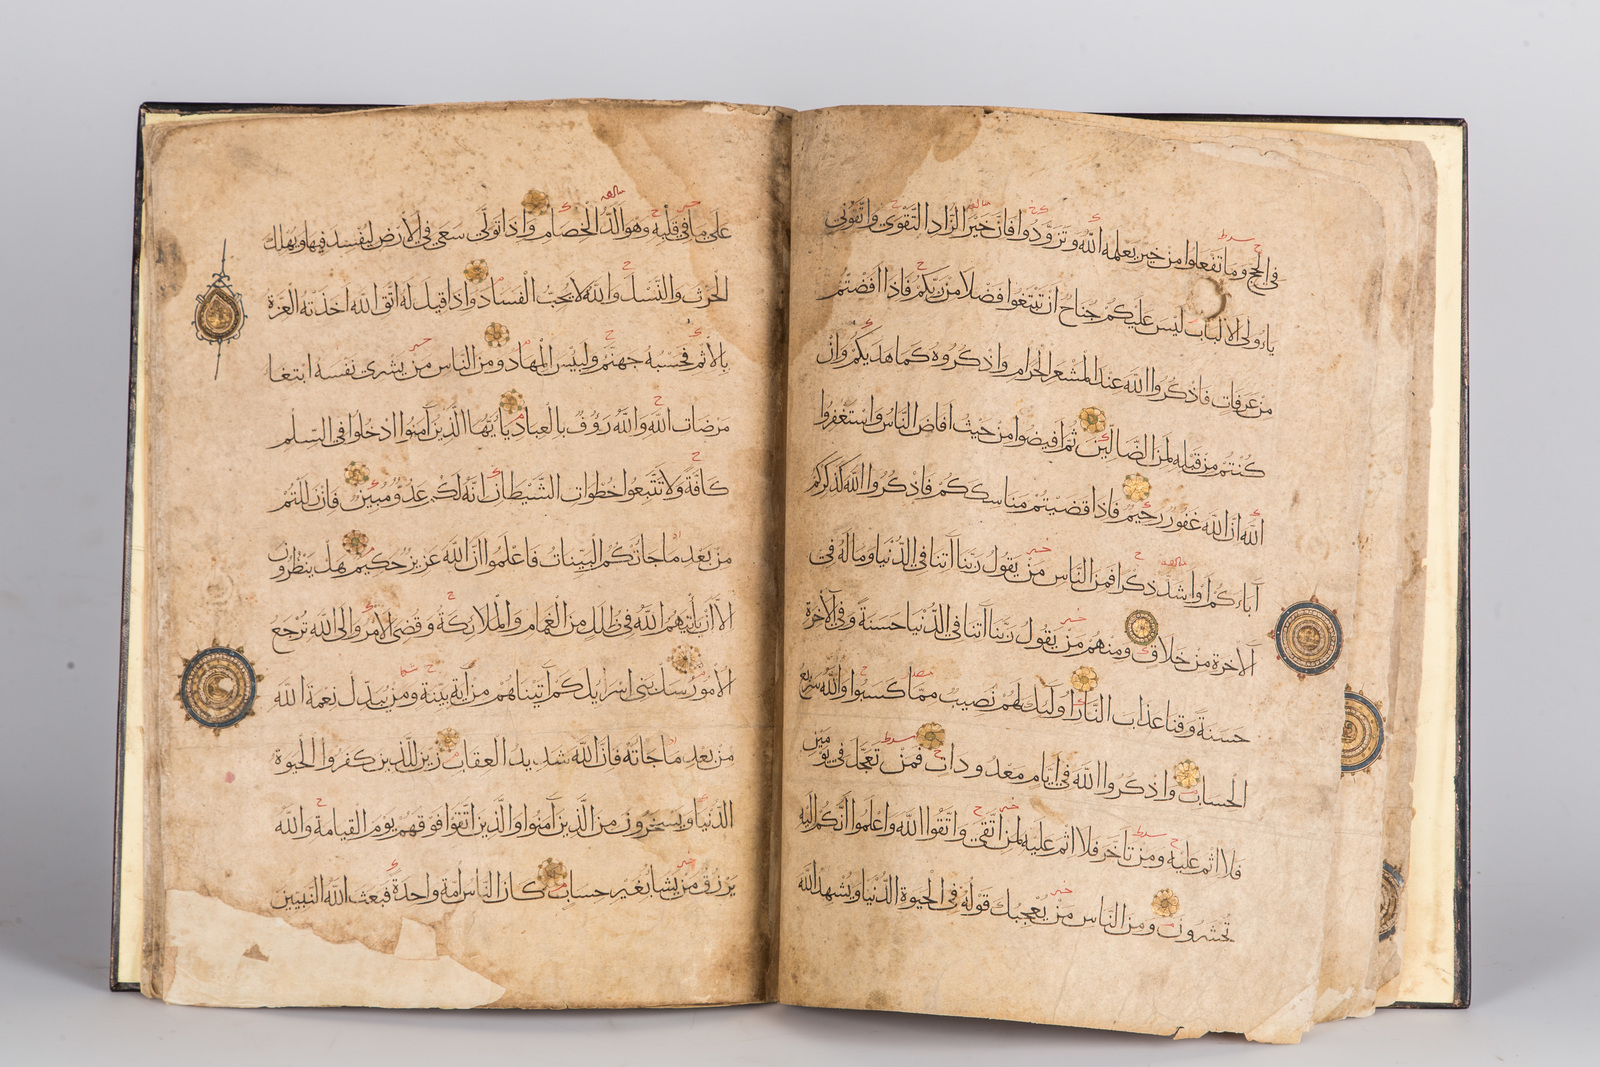 في الحج وما تفعلوا من خير يعلمه الله وتزودوا فان خير الزاد التقوى واتقوني
ياءولي الالباب ليس عليكم جناح ان تبتغوا فضلا من ربكم فاذا افضتم
من عرفات فاذكروا الله عند المشعر الحرام واذكروه كما هديكم وان
كنتم من قبله لمن الضالين ثم افيضوا من حيث افاض الناس واستغفروا
الله ان الله غفور رحيم فاذا قضيتم مناسككم فاذكروا الله كذكركم
آباءكم او اشد ذكرا فمن الناس من يقول ربنا آتنا في الدنيا وماله في
الآخرة من خلاق ومنهم من يقول ربنا آتنا في الدنيا حسنة وفي الآخرة
حسنة وقنا عذاب النار اولئك لهم نصيب مما كسبوا والله سريع
الحساب واذكروا الله في ايام معدودات فمن تعجل في يومين
فلا اثم عليه ومن تاخر فلا اثم عليه لمن اتقى واتقوا الله واعلموا انكم اليه
تحشرون ومن الناس من يعجبك قوله في الحيوة الدنيا ويشهد الله
على ما في قلبه وهو الد الخصام واذا تولى سعى في الارض ليفسد فيها ويهلك
الحرث والنسل والله لا يحب الفساد واذا قيل له اتق الله اخذته العزة
بالاثم فحسبه جهنم ولبئس المهاد ومن الناس من يشري نفسه ابتغا
مرضات الله والله رؤف بالعباد يا يها الذين آمنوا ادخلوا في السلم
كافة ولا تتبعوا خطوات الشيطان انه لكم عدو مبين فان زللتم
من بعد ما جاتكم البينات فاعلموا ان الله عزيز حكيم هل ينظرون
الا ان ياتيهم الله في ظلل من الغمام والملائكة وقضي الامر والى الله ترجع
الامور سل بني اسرايل كم آتيناهم من آية بينة ومن يبدل نعمة الله
من بعد ما جاته فان الله شديد العقاب زين للذين كفروا الحيوة
الدنيا ويسخرون من الذين آمنوا والذين اتقوا فوقهم يوم القيامة والله
يرزق من يشا بغير حساب كان الناس امة واحدة فبعث الله النبيين